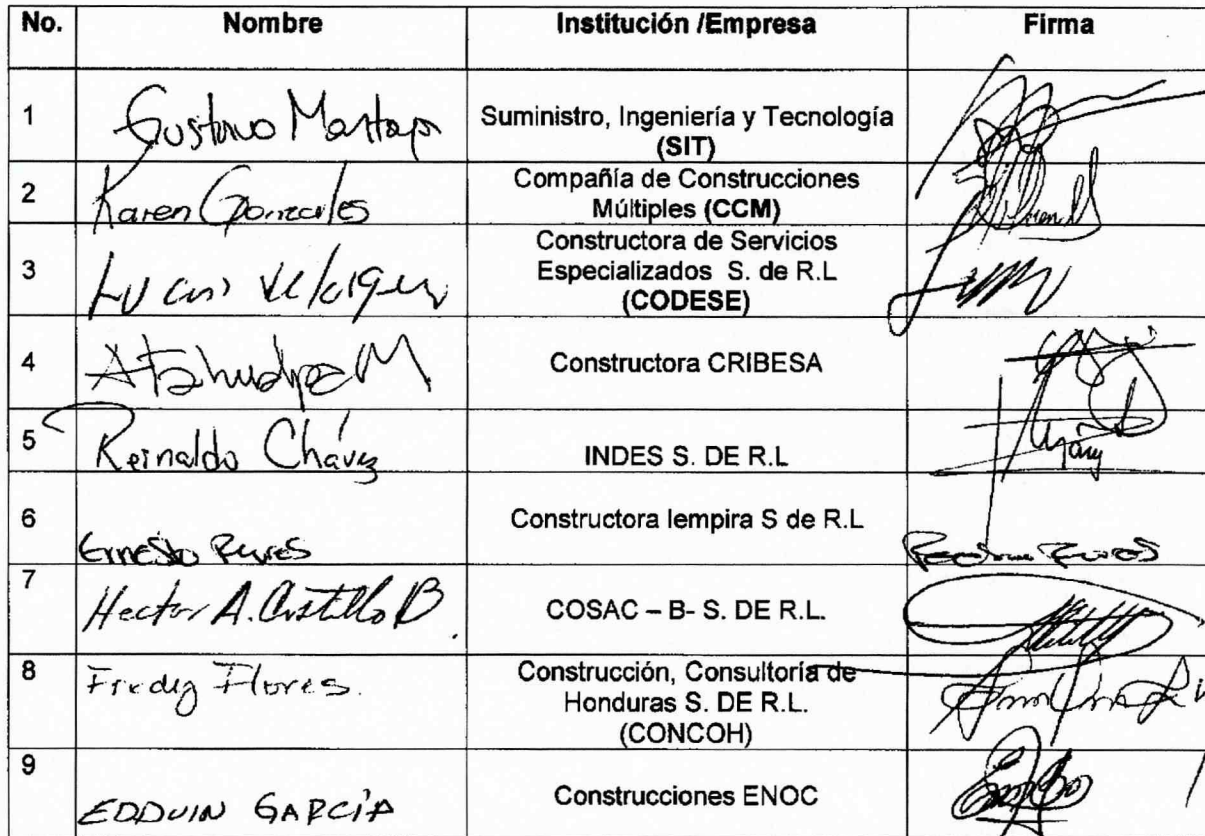 No. Nombre Institución /Empresa Firma
1 Gustavo Suministro, Ingeniería y Tecnología
(SIT)
2 Karen Gonzales Compañía de Construcciones
Múltiples (CCM)
3 Lucas Velasquez Constructora de Servicios
Especializados S. de R.L
(CODESE)
4 Atahualpa M Constructora CRIBESA
5 Reinaldo Chávez INDES S. DE R.L
6 Constructora lempira S de R.L
Ernesto Reyes
7 Hector A. Castillo B. COSAC – B- S. DE R.L.
8 Fredy Flores. Construcción, Consultoría de
Honduras S. DE R.L.
(CONCOH)
9 EDDUIN GARCÍA Construcciones ENOC